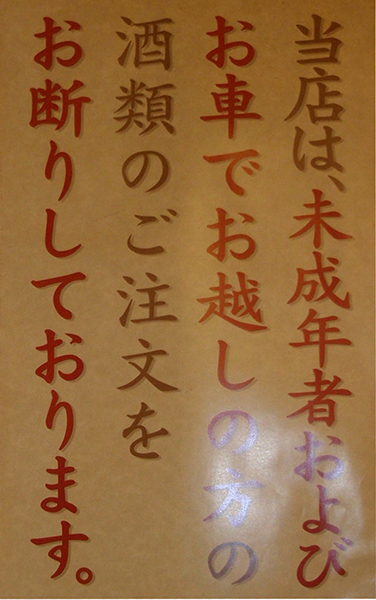 当店は、未成年者および
お車でお越しの方の
酒類のご注文を
お断りしております。